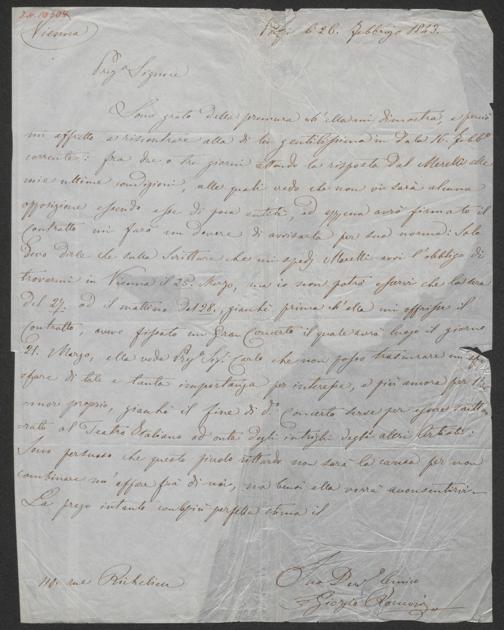 Vienna
Parigi li 26. Febbrajo 1843.
Preg.o Signore
Sono grato della premura ch'ella mi dimostra, e perciò
mi affretto a riscontrare alla di lei gentilissima in data 16. Febb.o
corrente: fra due o tre giorni attendo la risposta dal Merelli alle
mie ultime condizioni, alle quali credo che non vi sarà alcuna
opposizione essendo esse di poca entità, ed appena avrò firmato il
Contratto mi farò un dovere di avvisarla per sua norma: Solo
devo dirle che sulla Scrittura che mi spedì Merelli avvi l'obbligo di
trovarmi in Vienna il 25. Marzo, ma io non potrò esservi che la sera
del 27. od il mattino del 28., giacchè prima ch'ella mi offrisse il
Contratto, avevo fissato un Gran Concerto il quale avrà luogo il giorno
21. Marzo, ella vede Preg.o Sig.r Carlo che non posso trascurare un af-
fare di tale e tanta importanza per interesse, e più ancora per l'a-
mor proprio, giacchè il fine di d.o Concerto serve per essere scrittu-
rato al Teatro Italiano ad onta degli intrighi degli altri Artisti:
Sono persuaso che questo piccolo ritardo non sarà la causa per non
combinare un'affare frà di noi, ma bensì ella vorrà acconsentirvi.
La prego intanto con la più perfetta stima il
Suo Dev.o Amico
Giorgio Ronconi
110. rue Richelieu